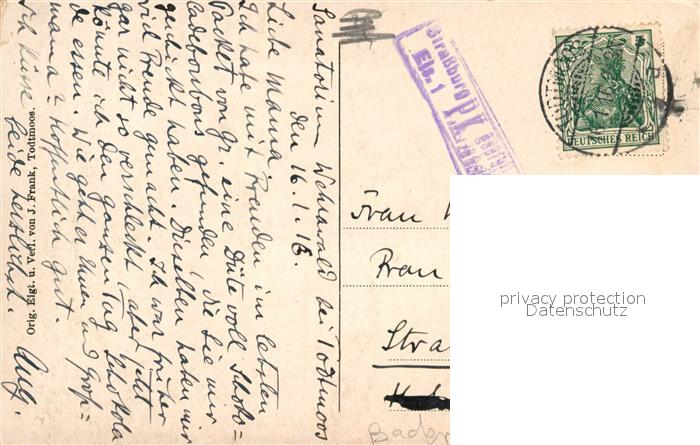 Sanatorium Wehrawald bei Todtmoos
den 16.1.16.
Liebe Mama.
Ich habe mit Freuden im letzten
Packet von Gr. eine Düte voll Schoko=
ladebonbons gefunden, die Sie mir
geschickt haben. Dieselben haben mir
viel Freude gemacht. Ich war früher
gar nicht so verschleckt, aber jetzt
könnte ich den ganzen Tag Schokola
de essen. Wie geht es Ihnen und Groß=
mama? Hoffentlich gut.
Ich küsse beide herzlichst.
Aug.
Orig. Eigt. u. Verl. von J. Frank, Todtmoos.
Straßburg
Els. 1
P.K.
DEUTSCHES REICH
5
Frau
Stra
Baden
privacy protection
Datenschutz